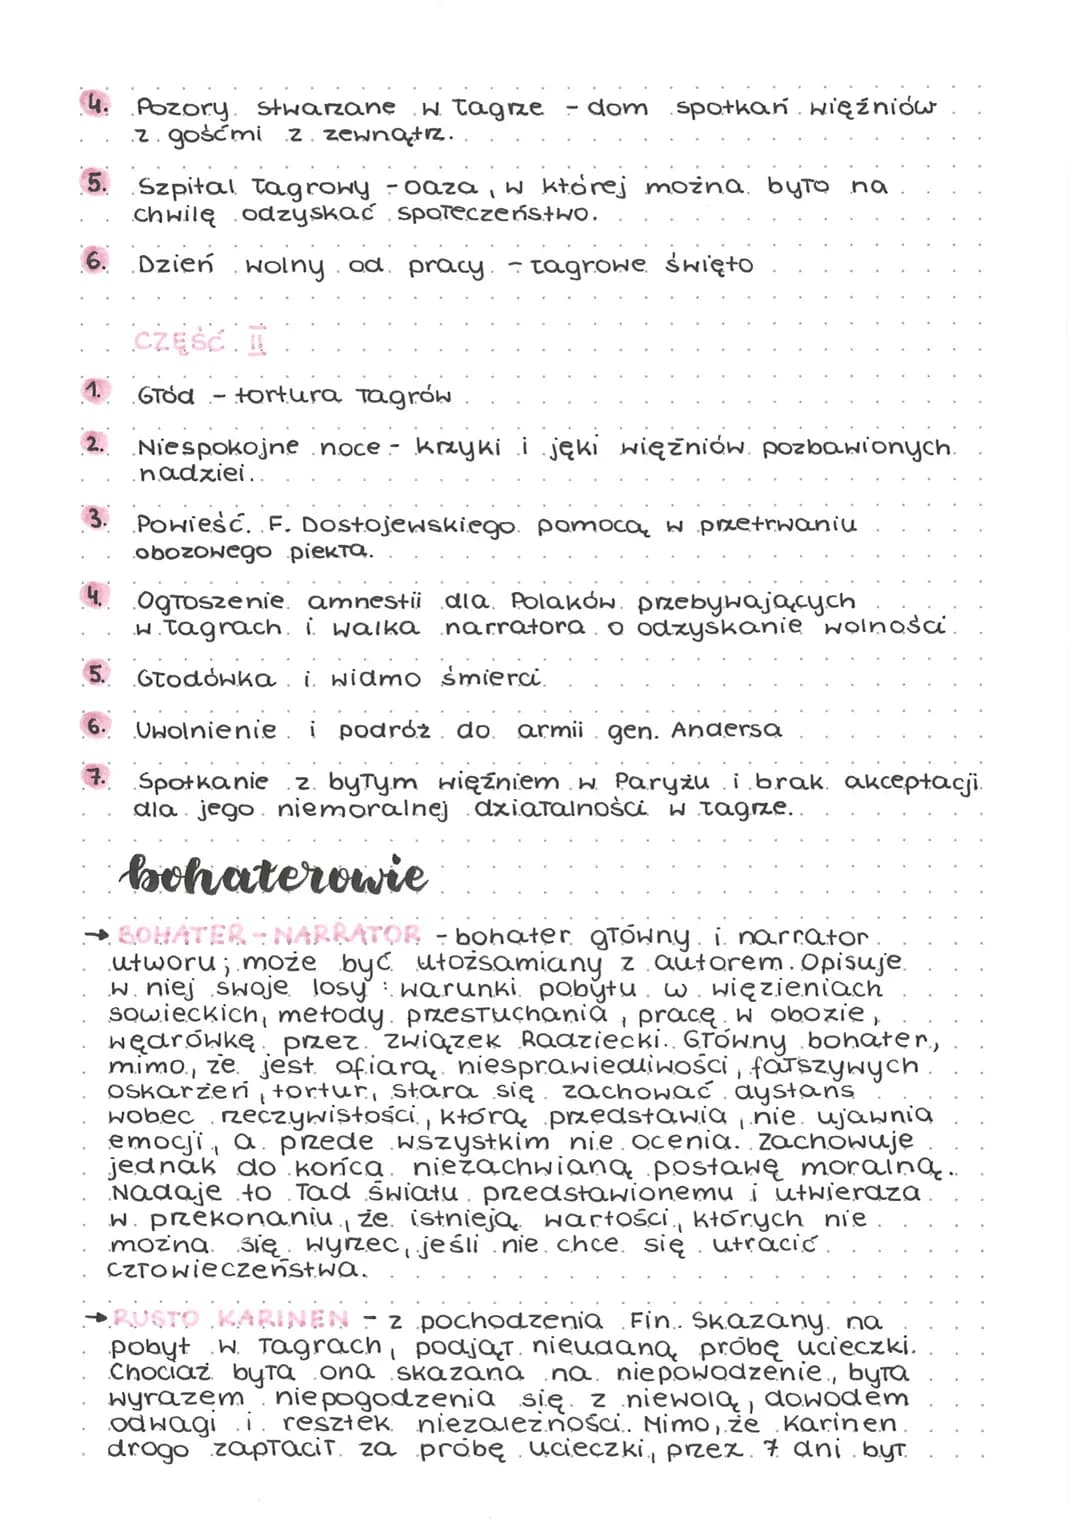 4. Pozory stwarzane w łagrze - dom spotkań więźniów
z gośćmi z zewnątrz.
5. Szpital łagrowy - oaza, w której można było na
chwilę odzyskać społeczeństwo.
6. Dzień wolny od pracy - łagrowe święto
CZĘŚĆ II
1. Głód - tortura łagrów
2. Niespokojne noce - krzyki i jęki więźniów pozbawionych
nadziei.
3. Powieść F. Dostojewskiego pomocą w przetrwaniu
obozowego piekła.
4. Ogłoszenie amnestii dla Polaków przebywających
w łagrach i walka narratora o odzyskanie wolności.
5. Głodówka i widmo śmierci.
6. Uwolnienie i podróż do armii gen. Andersa
7. Spotkanie z byłym więźniem w Paryżu i brak akceptacji
dla jego niemoralnej działalności w łagrze.
bohaterowie
→ BOHATER - NARRATOR - bohater główny i narrator
utworu; może być utożsamiany z autorem. Opisuje
w niej swoje losy: warunki pobytu w więzieniach
sowieckich, metody przesłuchania, pracę w obozie,
wędrówkę przez Związek Radziecki. Główny bohater,
mimo, że jest ofiarą niesprawiedliwości, fałszywych
oskarżeń, tortur, stara się zachować dystans
wobec rzeczywistości, którą przedstawia, nie ujawnia
emocji, a przede wszystkim nie ocenia. Zachowuje
jednak do końca niezachwianą postawę moralną.
Nadaje to ład światu przedstawionemu i utwierdza
w przekonaniu, że istnieją wartości, których nie
można się wyrzec, jeśli nie chce się utracić
człowieczeństwa.
→ RUSTO KARINEN - z pochodzenia Fin. Skazany na
pobyt w łagrach, podjął nieudaną próbę ucieczki.
Chociaż była ona skazana na niepowodzenie, była
wyrazem niepogodzenia się z niewolą, dowodem
odwagi i resztek niezależności. Mimo, że Karinen
drogo zapłacił za próbę ucieczki, przez 7 dni był